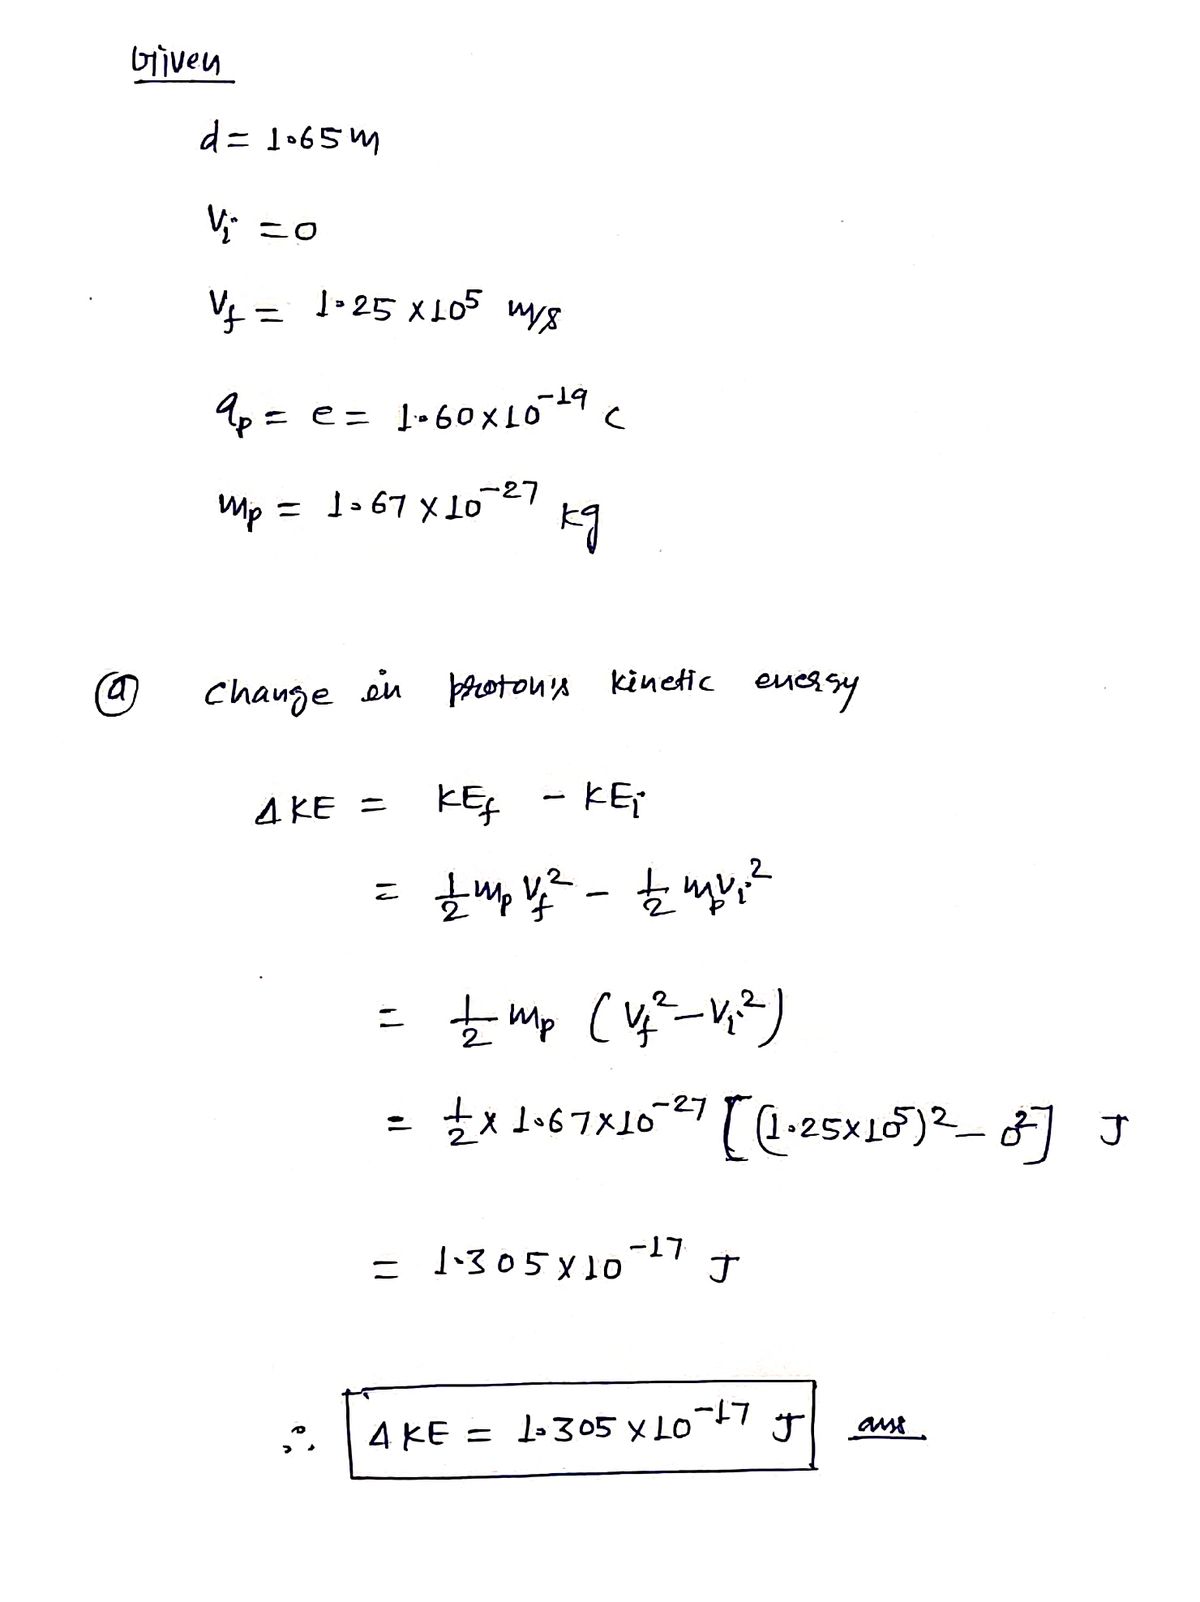 Given
d = 1.65 m
Vi = 0
Vf = 1.25 × 10⁵ m/s
qp = e = 1.60 × 10⁻¹⁹ C
mp = 1.67 × 10⁻²⁷ kg
(a) Change in proton's kinetic energy
Δ KE = KEf - KEi
= 1/2 mp Vf² - 1/2 mp Vi²
= 1/2 mp (Vf² - Vi²)
= 1/2 × 1.67 × 10⁻²⁷ [(1.25 × 10⁵)² - 0²] J
= 1.305 × 10⁻¹⁷ J
∴ Δ KE = 1.305 × 10⁻¹⁷ J ans